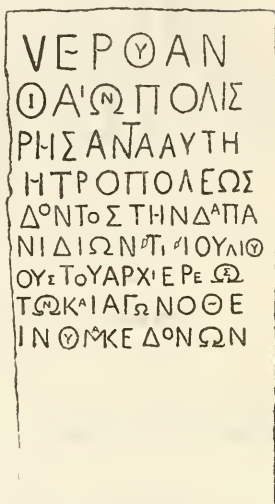 VΕΡΟΥΑΝ
ΟΙΑΙΩΝΠΟΛΙΣ
ΡΗΣΑΝΤΑΑΥΤΗ
ΗΤΡΟΠΟΛΕΩΣ
ΔΟΝΤΟΣΤΗΝΔΑΠΑ
ΝΙΔΙΩΝ ΤΙ ΙΟΥΛΙΟΥ
ΟΥΣΤΟΥΑΡΧΙΕΡΕΩΣ
ΤΩΝΚΑΙΑΓΩΝΟΘΕ
ΙΝΟΥΜΑΚΕΔΟΝΩΝ